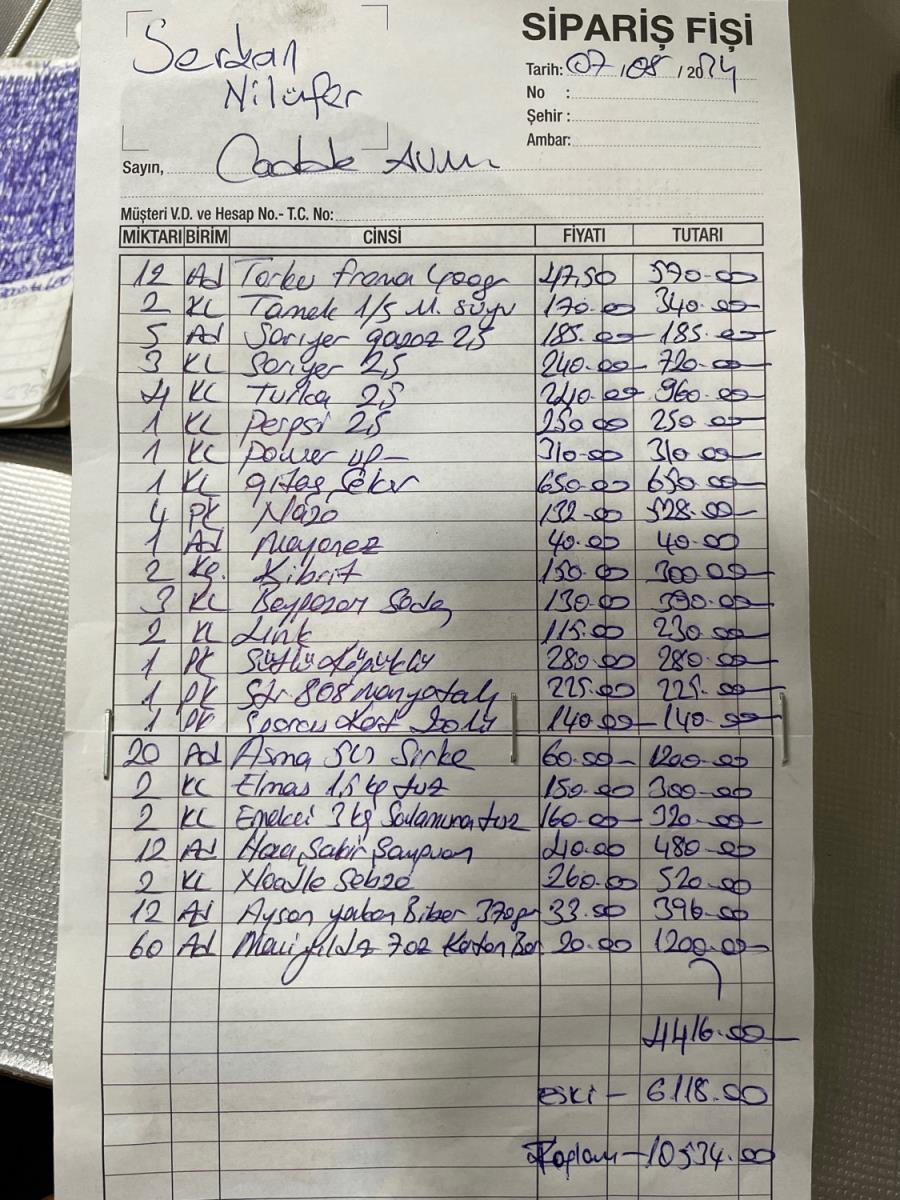 Serkan
Nilüfer
SİPARİŞ FİŞİ
Tarih: 07/08/2024
No :
Şehir :
Ambar:
Sayın, Cadde AVM
Müşteri V.D. ve Hesap No.- T.C. No:
MİKTARI BİRİM CİNSİ FİYATI TUTARI
12 Ad Torku frana 47,50 570.00
2 KL Tamek 1/5 M. suyu 170.00 340.00
5 Ad Sarıyer gazoz 2,5 185.00 185.00
3 KL Sarıyer 2,5 240.00 720.00
4 KL Turka 2,5 240.00 960.00
1 KL Pepsi 2,5 250.00 250.00
1 KL Power up 310.00 310.00
1 KL şeker 650.00 650.00
4 PK 132.00 528.00
1 Ad Mayonez 40.00 40.00
2 Kg. Kibrit 150.00 300.00
3 KL Beypazarı Soda 130.00 390.00
2 KL Link 115.00 230.00
1 PK Sütlü Köpüklü 280.00 280.00
1 PK Str. 808 225.00 225.00
1 PK 140.00 140.00
20 Ad Asma Sirke 60.00 1200.00
2 KL Elmas 1,5 kg tuz 150.00 300.00
2 KL Emekci 3 kg Salamura tuz 160.00 320.00
12 Ad Hacı Şakir Şampuan 40.00 480.00
2 KL Noodle Sebze 260.00 520.00
12 Ad Biber 370gr 33.00 396.00
60 Ad Mavi yıldız 7oz Karton Bar 20.00 1200.00
4416.00
eski - 6118.00
Toplam - 10534.00